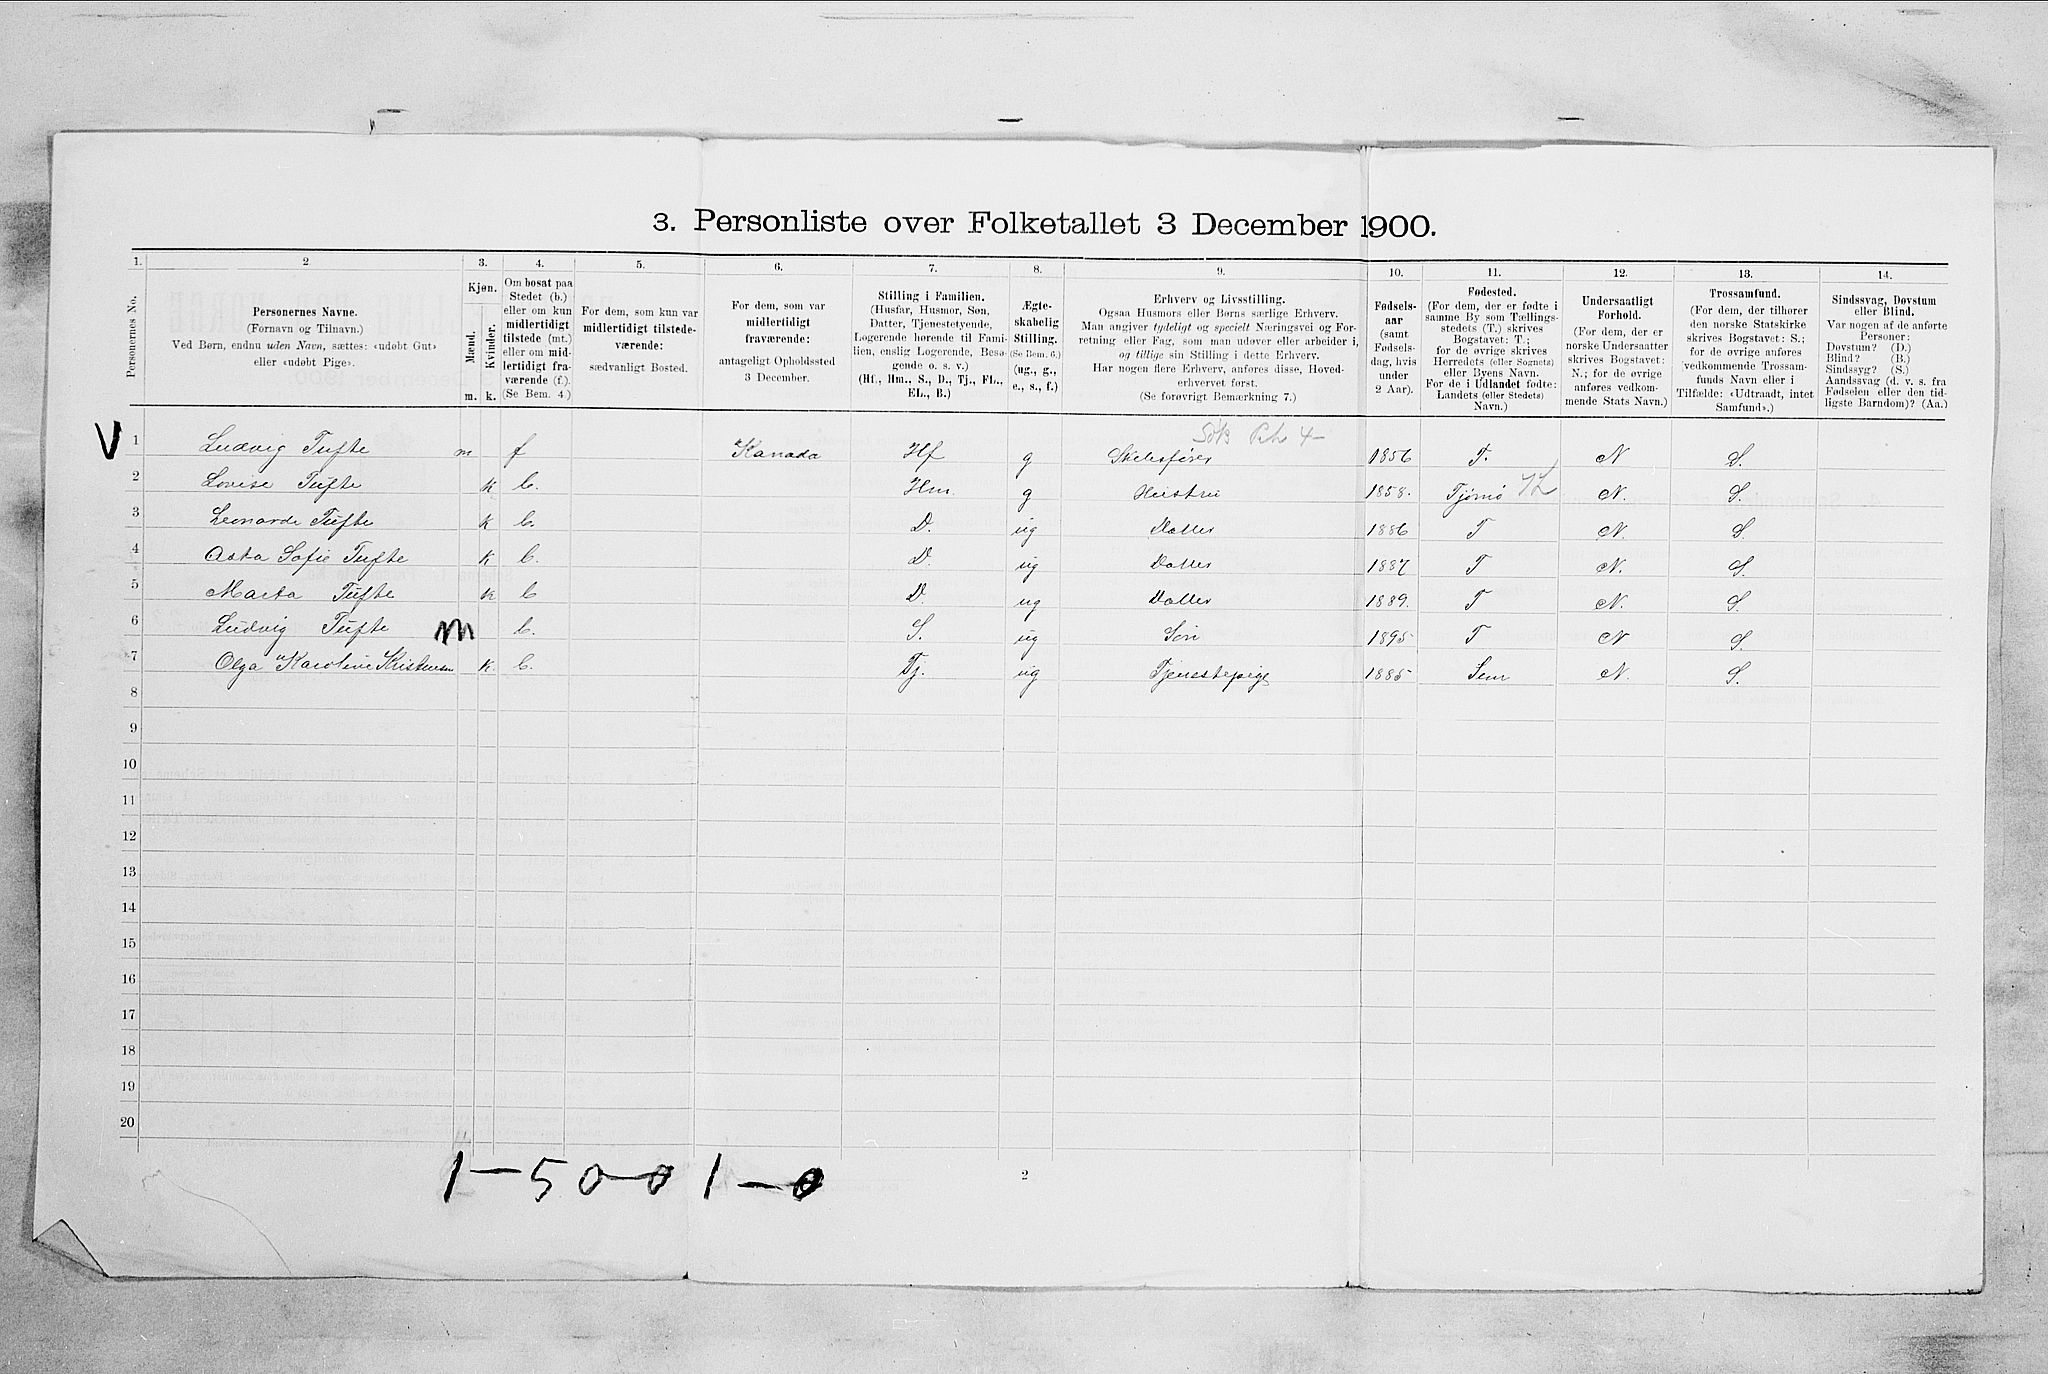 3. Personliste over Folketallet 3 December 1900.
1. 2. 3. 4. 5. 6. 7. 8. 9. 10. 11. 12. 13. 14.
Personernes No.
Personernes Navne.
(Fornavn og Tilnavn.)
Ved Børn, endnu uden Navn, sættes: «udøbt Gut»
eller «udøbt Pige».
Kjøn.
Mænd.
Kvinder.
m. k.
Om bosat paa
Stedet (b.)
eller om kun
midlertidigt
tilstede (mt.)
eller om mid-
lertidigt fra-
værende (f.).
(Se Bem. 4.)
For dem, som kun var
midlertidigt tilstede-
værende:
sædvanligt Bosted.
For dem, som var
midlertidigt
fraværende:
antageligt Opholdssted
3 December.
Stilling i Familien.
(Husfar, Husmor, Søn,
Datter, Tjenestetyende,
Logerende hørende til Fami-
lien, enslig Logerende, Besø-
gende o. s. v.)
(Hf., Hm., S., D., Tj., FL.,
EL., B.)
Ægte-
skabelig
Stilling.
(Se Bem. 6.)
(ug., g.,
e., s., f.)
Erhverv og Livsstilling.
Ogsaa Husmors eller Børns særlige Erhverv.
Man angiver tydeligt og specielt Næringsvei og For-
retning eller Fag, som man udøver eller arbeider i,
og tillige sin Stilling i dette Erhverv.
Har nogen flere Erhverv, anføres disse, Hoved-
erhvervet først.
(Se forøvrigt Bemærkning 7.)
Fødsels-
aar
(samt
Fødsels-
dag, hvis
under
2 Aar).
Fødested.
(For dem, der er fødte i
samme By som Tællings-
stedets (T.) skrives
Bogstavet: T.;
for de øvrige skrives
Herredets (eller Sognets)
eller Byens Navn.
For de i Udlandet fødte:
Landets (eller Stedets)
Navn.)
Undersaatligt
Forhold.
(For dem, der er
norske Undersaatter
skrives Bogstavet:
N.; for de øvrige
anføres vedkom-
mende Stats Navn.)
Trossamfund.
(For dem, der tilhører
den norske Statskirke
skrives Bogstavet: S.;
for de øvrige anføres
vedkommende Trossam-
funds Navn eller i
Tilfælde: «Udtraadt, intet
Samfund».)
Sindssvag, Døvstum
eller Blind.
Var nogen af de anførte
Personer:
Døvstum? (D.)
Blind? (B.)
Sindssyg? (S.)
Aandssvag (d. v. s. fra
Fødselen eller den tid-
ligste Barndom)? (Aa.)
V 1 Ludvig Tufte m f Kanada Hf g Skibsfører 1856 T. N S.
2 Lovise Tufte k b. Hm. g Hustru 1858. Tjømø N. S.
3 Leonarde Tufte k b. D. ug Datter 1886 T N. S.
4 Asta Sofie Tufte k b. D. ug Datter 1887 T N. S.
5 Marta Tufte k b D. ug Datter 1889. T N. S.
6 Ludvig Tufte m b. S. ug Søn 1895 T N S.
7 Olga Karoline Kristensen k b. Tj. ug Tjenestepige 1885 Sem N. S.
8
9
10
11
12
13
14
15
16
17
18
19
20
1-5 0-0 1-0
2